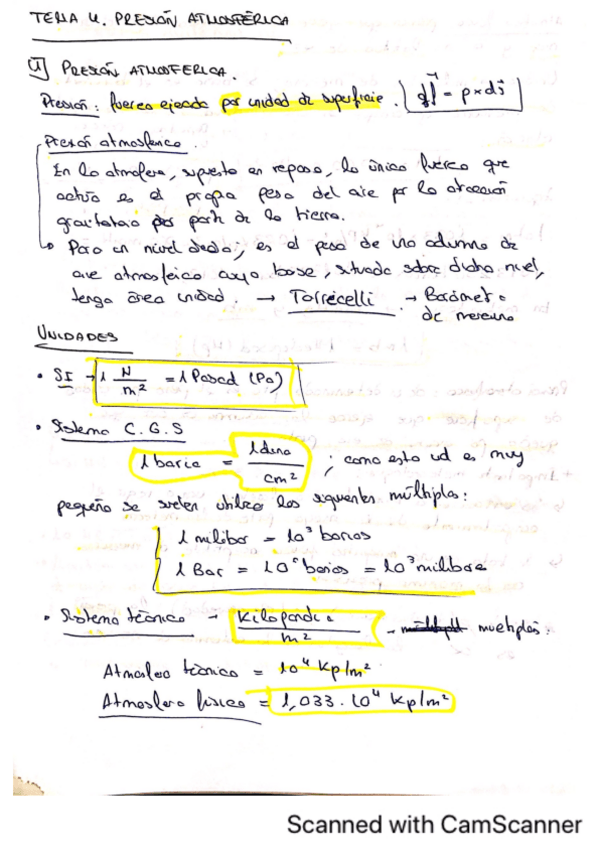 TEMA 4. PRESIÓN ATMOSFÉRICA
1) PRESIÓN ATMOSFERICA.
Presión: fuerza ejercida por unidad de superficie. df = p×ds
Presión atmosférica.
En la atmósfera, supuesta en reposo, la única fuerza que
actúa es el propio peso del aire por la atracción
gravitatoria por parte de la tierra.
Para un nivel dado; es el peso de una columna de
aire atmosférico cuya base, situada sobre dicho nivel,
tenga área unidad. → Torricelli → Barómetro
de mercurio
UNIDADES
• SI → 1 N/m² = 1 Pascal (Pa)
• Sistema C.G.S
1 baria = 1 dina/cm² ; como esta ud es muy
pequeña se suelen utilizar los siguientes múltiplos:
1 milibar = 10³ barias
1 Bar = 10⁶ barias = 10³ milibares
• Sistema técnico → Kilopondio/m² → múltiplos:
Atmósfera técnica = 10⁴ Kp/m²
Atmósfera física = 1,033·10⁴ Kp/m²
Scanned with CamScanner